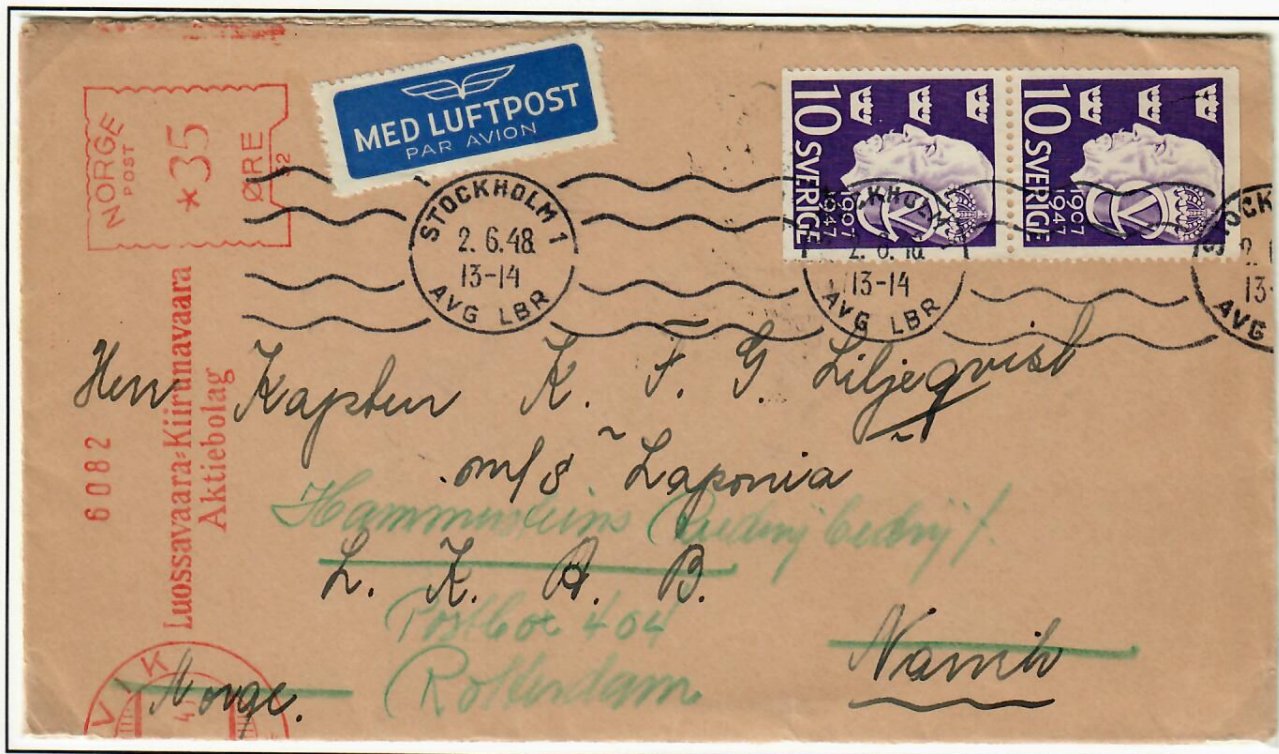 NORGE
POST
*35
ØRE
32
MED LUFTPOST
PAR AVION
10 SVERIGE
1907
1947
10 SVERIGE
1907
1947
STOCKHOLM 1
2.6.48.
13-14
AVG LBR
STOCKHOLM
2.6.48
13-14
AVG LBR
STOCK
2.
13-
AVG
6082
Luossavaara=Kiirunavaara
Aktiebolag
VIK
Herr Kapten K. F. G. Liljeqvist
m/s Laponia
Hammersteins
L. K. A. B.
Postbox 404
Rotterdam
Narvik
Norge.